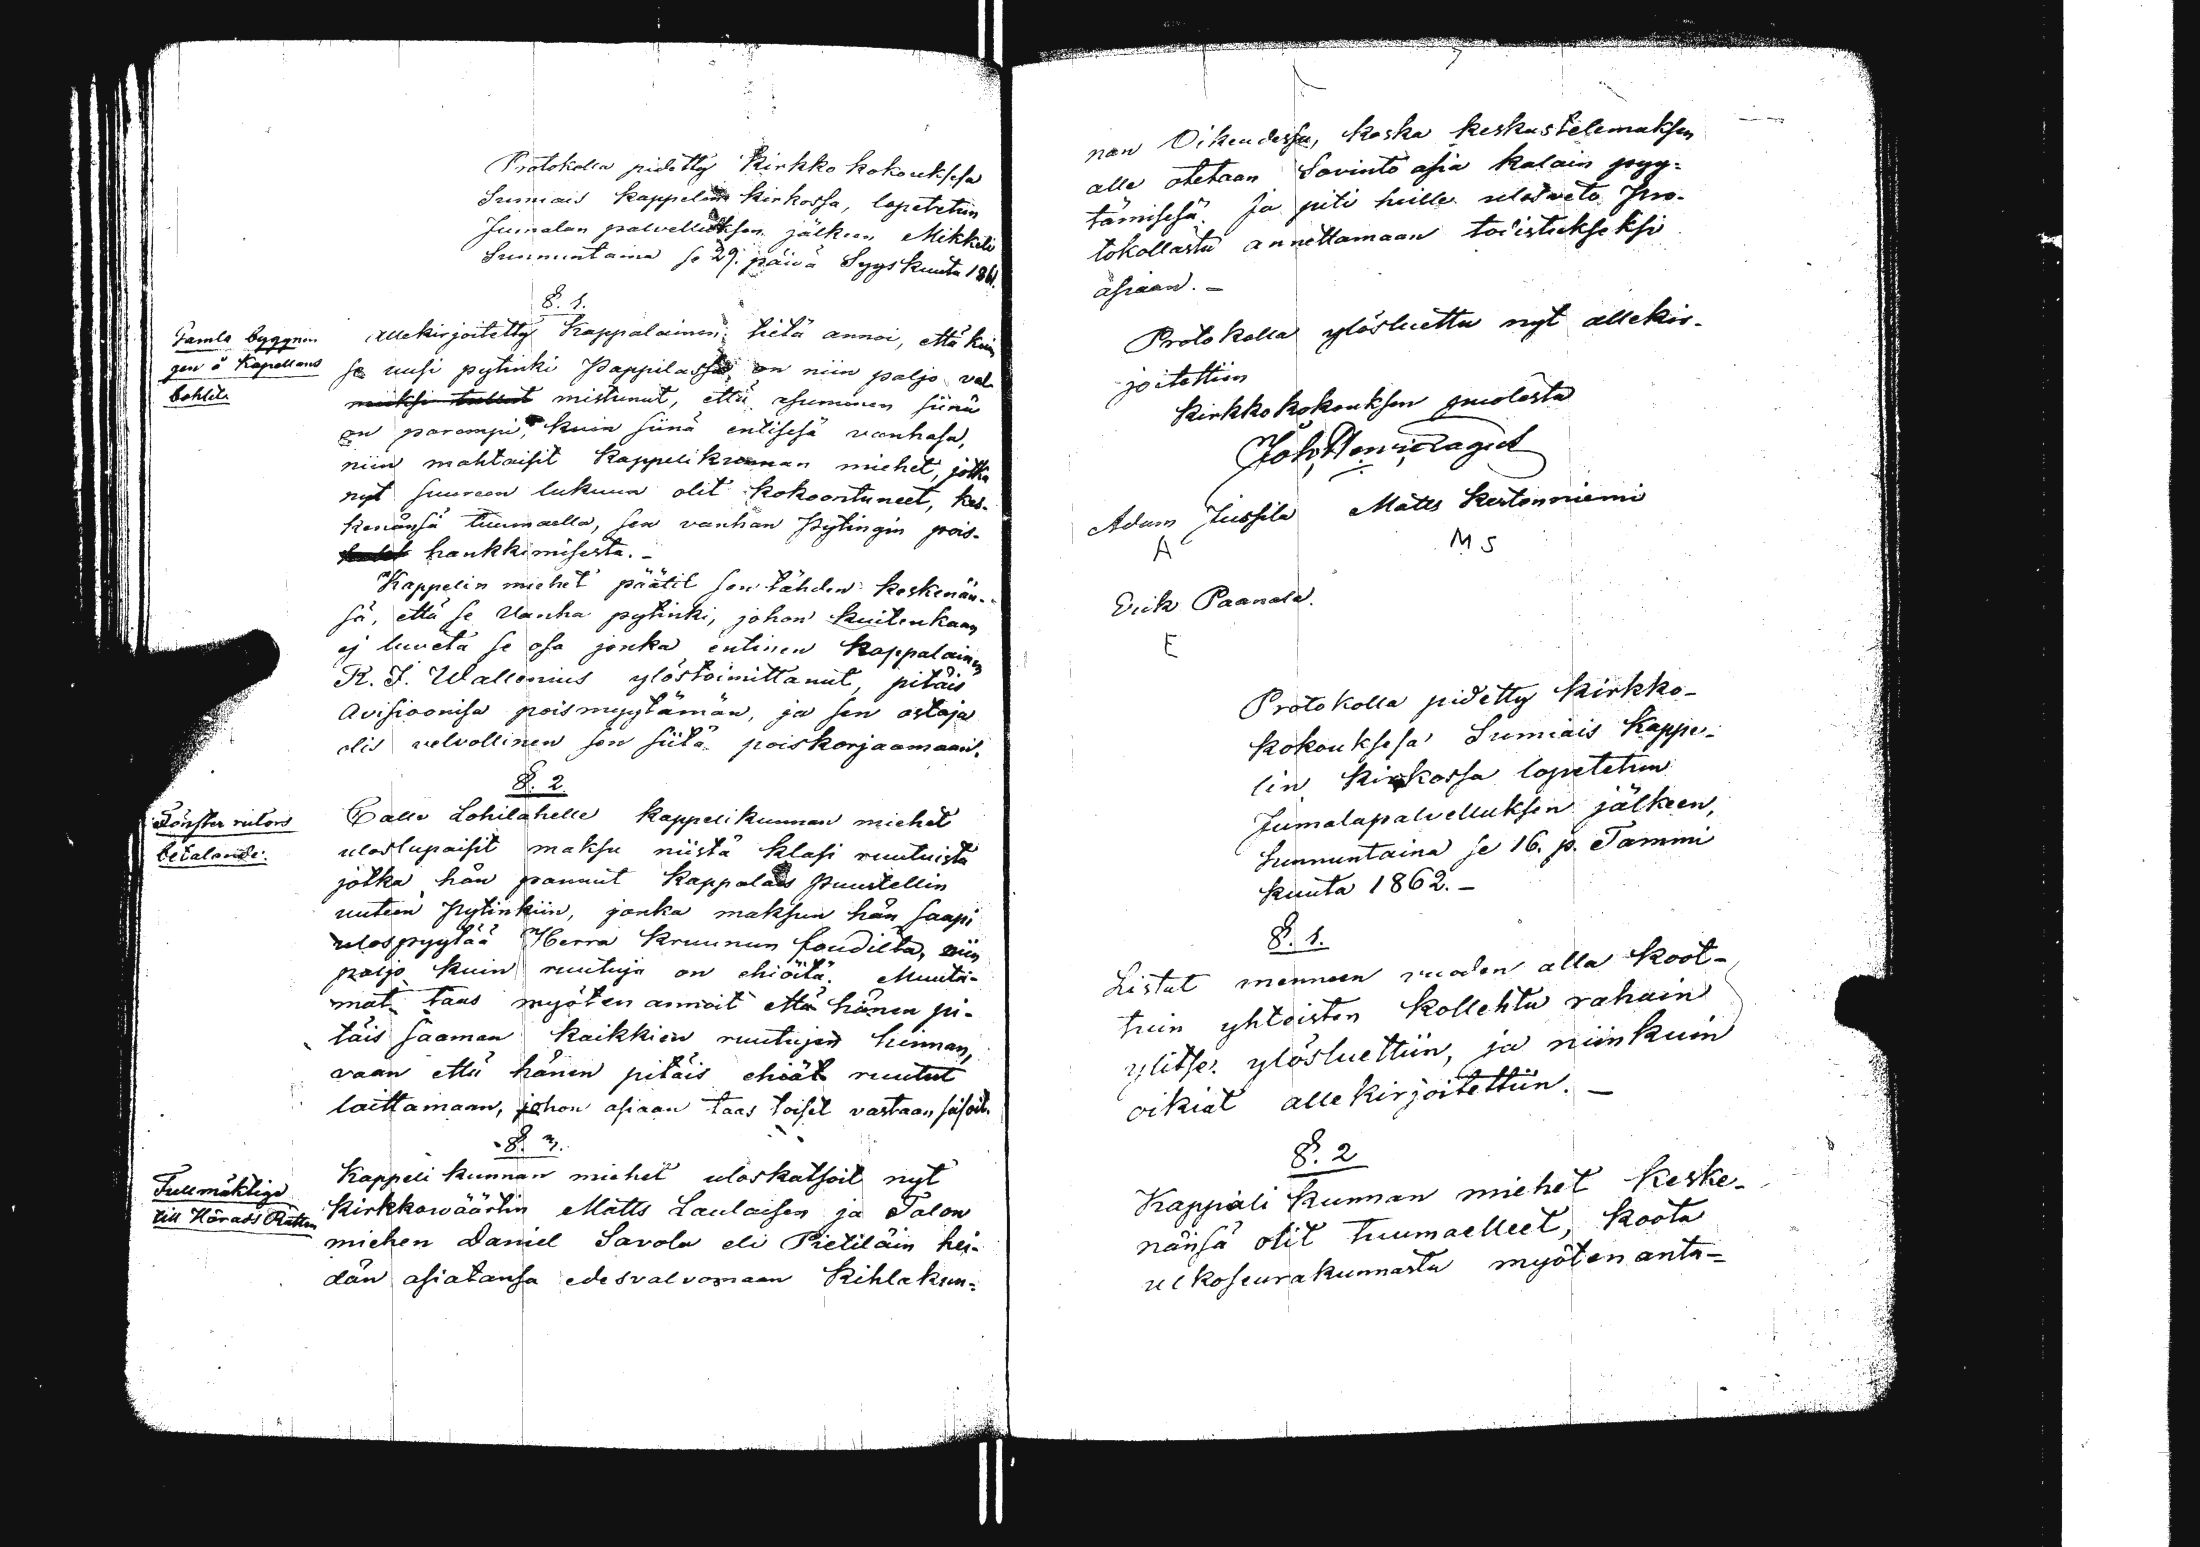 Protokolla pidetty Kirkko kokouksesa
Sumiais Kappelin Kirkossa, lopetetun
Jumalan palvelluksen jälkeen Mikkeli
Sunnuntaina se 29. päivä Syyskuuta 1861.
§. 1.
Gamla byggnin
gen å Kapellans
bohlet.
Allekirjoitettu Kappalainen tietä annoi, että kuin
se uusi pytinki Pappilassa, on niin paljo val
mistunut, että asuminen siinä
on parempi, kuin siinä entisesä vanhasa,
niin mahtaisit Kappelikunnan miehet, jotka
nyt suureen lukuun olit kokoontuneet, kes-
kenänsä tuumaella, sen vanhan Pytingin pois-
hankkimisesta. -
Kappelin miehet päätit sen tähden keskenän-
sä, että se Vanha pytinki, johon kuitenkaan
ej luveta se osa jonka entinen Kappalainen
K. J. Wallenius ylöstoimittanut, pitäis
Avisioonisa poismyytämän, ja sen ostaja
olis velvollinen sen siitä poiskorjaamaan.
§. 2.
Fönster rutors
betalande.
Calle Lohilahelle Kappelikunnan miehet
uloslupaisit maksu niistä klasi ruutuista
jotka hän pannut Kappalais Puustellin
uuteen Pytinkiin, jonka maksun hän saapi
ulospyytää Herra Kruunun foudilta, niin
paljo kuin ruutuja on ehiöitä. Muuta-
mat taas myöten annoit että hänen pi-
täis saaman kaikkien ruutujen hinnan,
vaan että hänen pitäis ehiät ruutut
laittamaan, johon asiaan taas toiset vastaan seisoit.
§. 3.
Fullmäktige
till Härads Rätten
Kappeli kunnan miehet uloskatsoit nyt
Kirkkowäärtin Matts Laulaisen ja Talon
miehen Daniel Savola eli Pietiläin hei-
dän asiatansa edesvalvomaan Kihlakun-
nan Oikeudessa, koska keskustelemaksen
alle otetaan Sovinto asia kalain pyy-
tämisesä. Ja piti heille ulosveto Pro-
tokollasta annettamaan todistukseksi
asiaan. -
Protokolla ylösluettu nyt allekir-
joitettiin
Kirkkokokouksen puolesta
Joh. Henr.
Adam Jussila Matts Kertonniemi
A M S
Erik Paanala.
E
Protokolla pidetty Kirkko-
kokouksesa Sumiais Kappe-
lin Kirkossa lopetetun
Jumalapalvelluksen jälkeen,
Sunnuntaina se 16. p. Tammi
kuuta 1862. -
§. 1.
Listat menneen vuoden alla koot-
tuin yhteisten kollehta rahain
ylitse ylösluettiin, ja niinkuin
oikiat allekirjoitettiin. -
§. 2
Kappali kunnan miehet keske-
nänsä olit tuumaelleet, koota
ulkoseurakunnasta myöten anta-